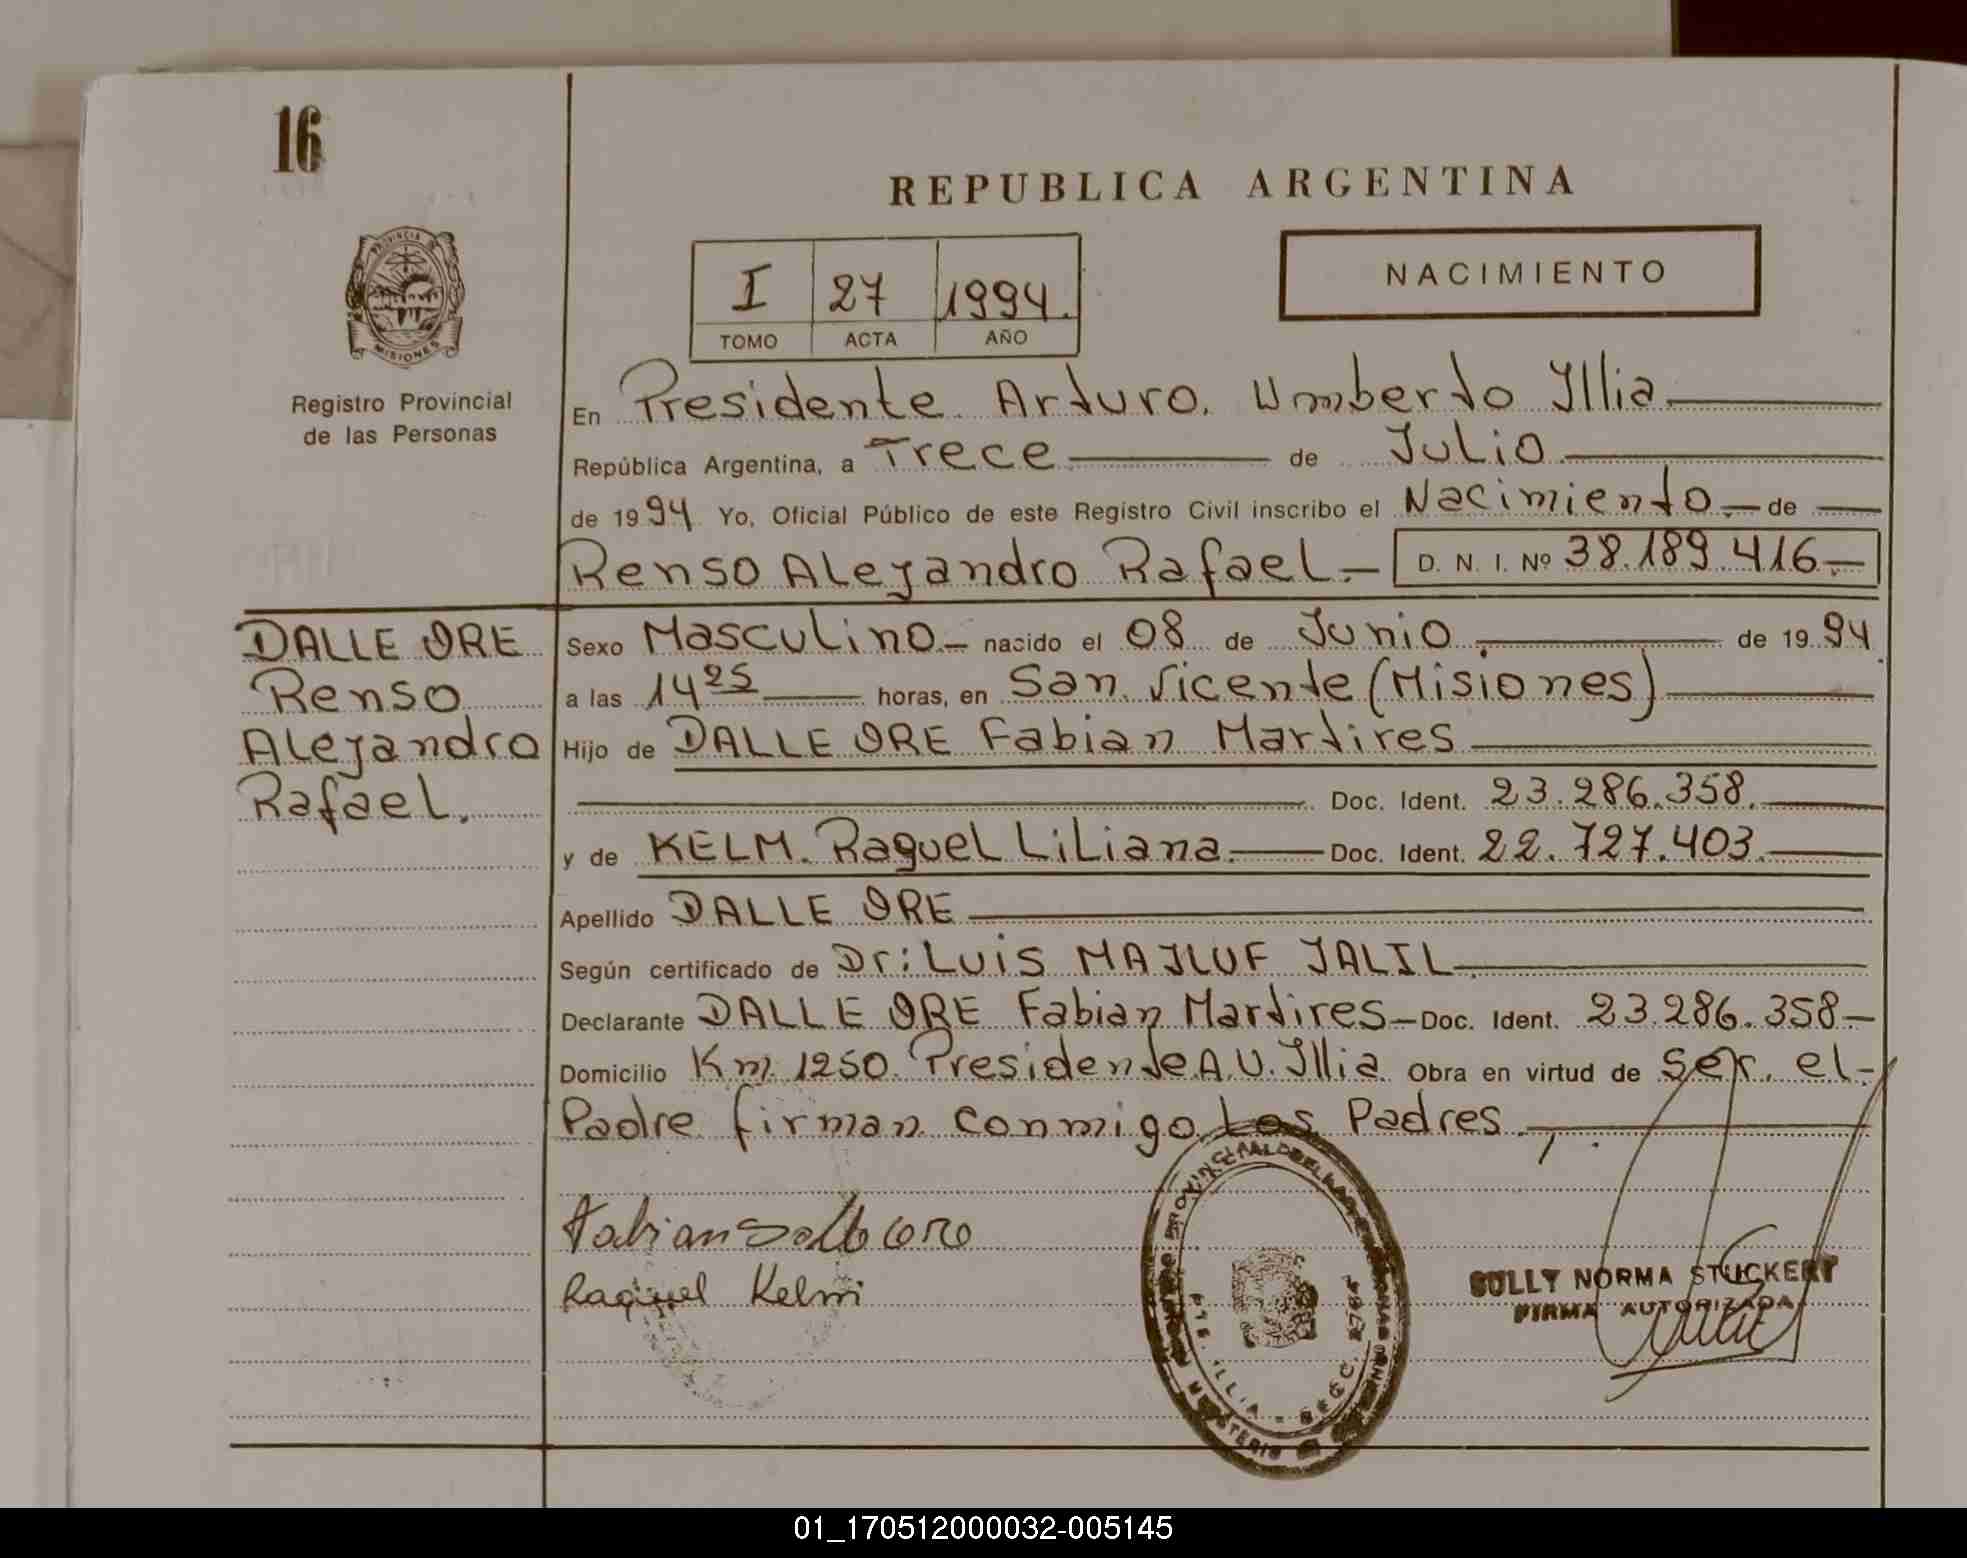 16
REPUBLICA ARGENTINA
I 27 1994.
TOMO ACTA AÑO
NACIMIENTO
PROVINCIA DE
MISIONES
Registro Provincial
de las Personas
En Presidente Arturo. Umberto Illia.
República Argentina, a Trece de Julio
de 1994 Yo, Oficial Público de este Registro Civil inscribo el Nacimiento.— de
Renso Alejandro Rafael.— D. N. I. Nº 38.189.416.—
DALLE ORE
Renso
Alejandro
Rafael.
Sexo Masculino.— nacido el 08 de Junio de 1994
a las 14 25 horas, en San Vicente (Misiones)
Hijo de DALLE ORE Fabian Martires
Doc. Ident. 23.286.358.
y de KELM. Raquel Liliana. Doc. Ident. 22.727.403.
Apellido DALLE ORE
Según certificado de Dr: Luis MAJLUF JALIL
Declarante DALLE ORE Fabian Martires— Doc. Ident. 23.286.358—
Domicilio Km. 1250. Presidente A.U. Illia. Obra en virtud de ser. el-
Padre firman conmigo Los Padres
Raquel Kelm
SULLY NORMA STUCKERT
FIRMA AUTORIZADA
01_170512000032-005145